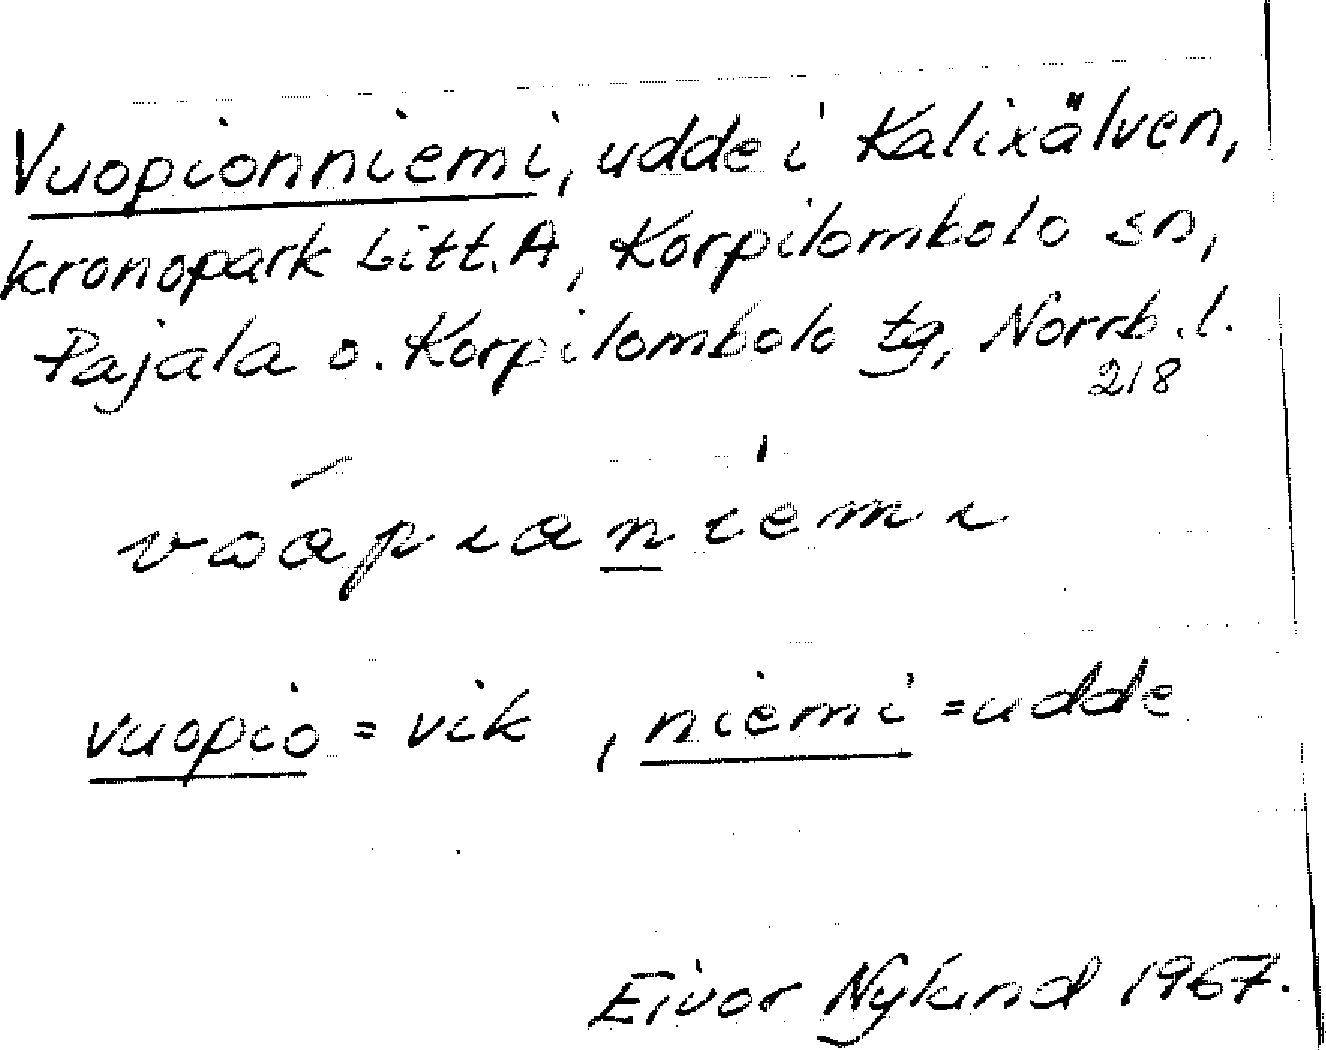 Vuopionniemi, udde i Kalixälven,
kronopark Litt. A, Korpilombolo sn,
Pajala o. Korpilombolo tg, Norrb. l.
218
vuopio = vik , niemi = udde
Eivor Nylund 1967.